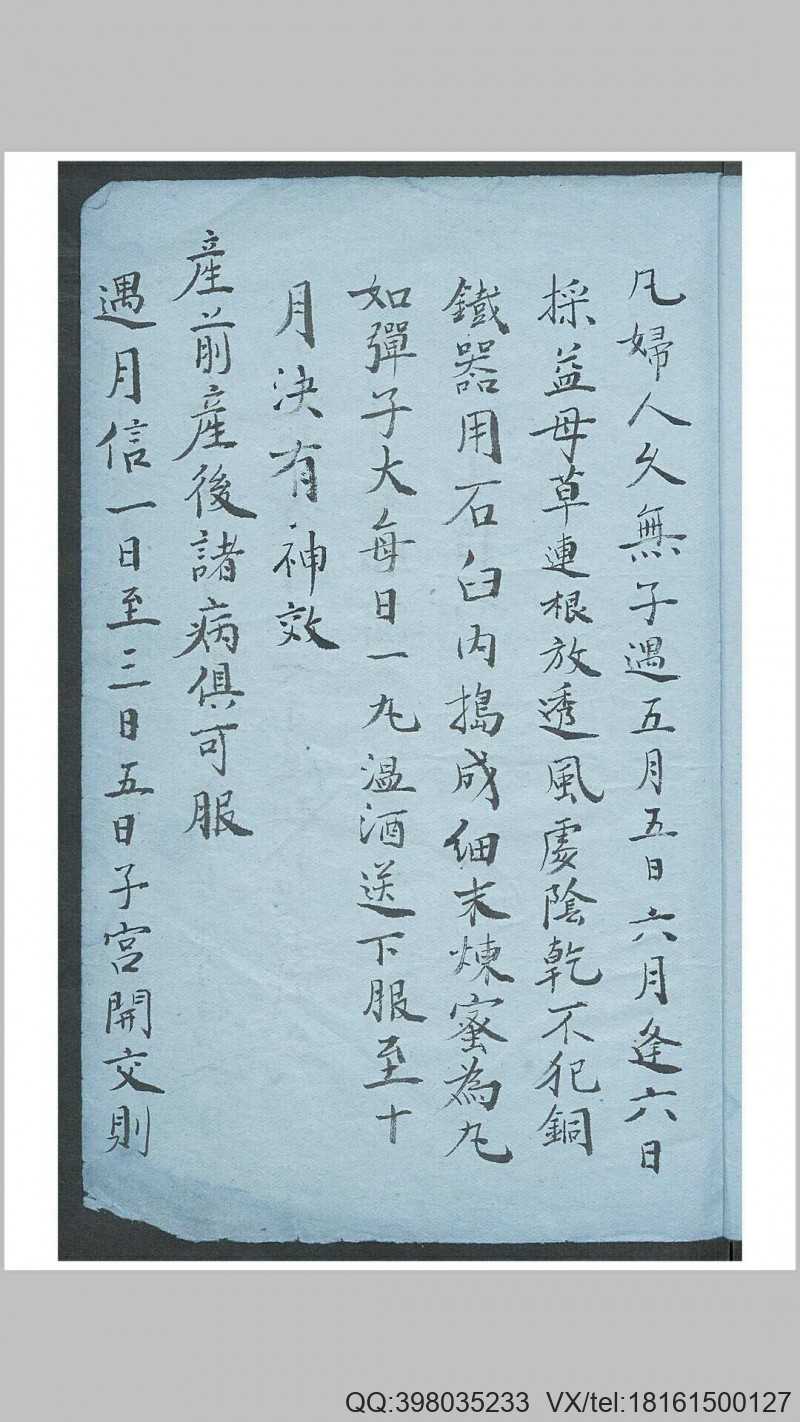 凡婦人久無子遇五月五日六月逢六日
採益母草連根放透風處陰乾不犯銅
鐵器用石臼内搗成细末煉蜜為丸
如彈子大每日一丸温酒送下服至十
月決有神效
産前産後諸病俱可服
遇月信一日至三日五日子宮開交則
QQ:398035233 VX/tel:18161500127